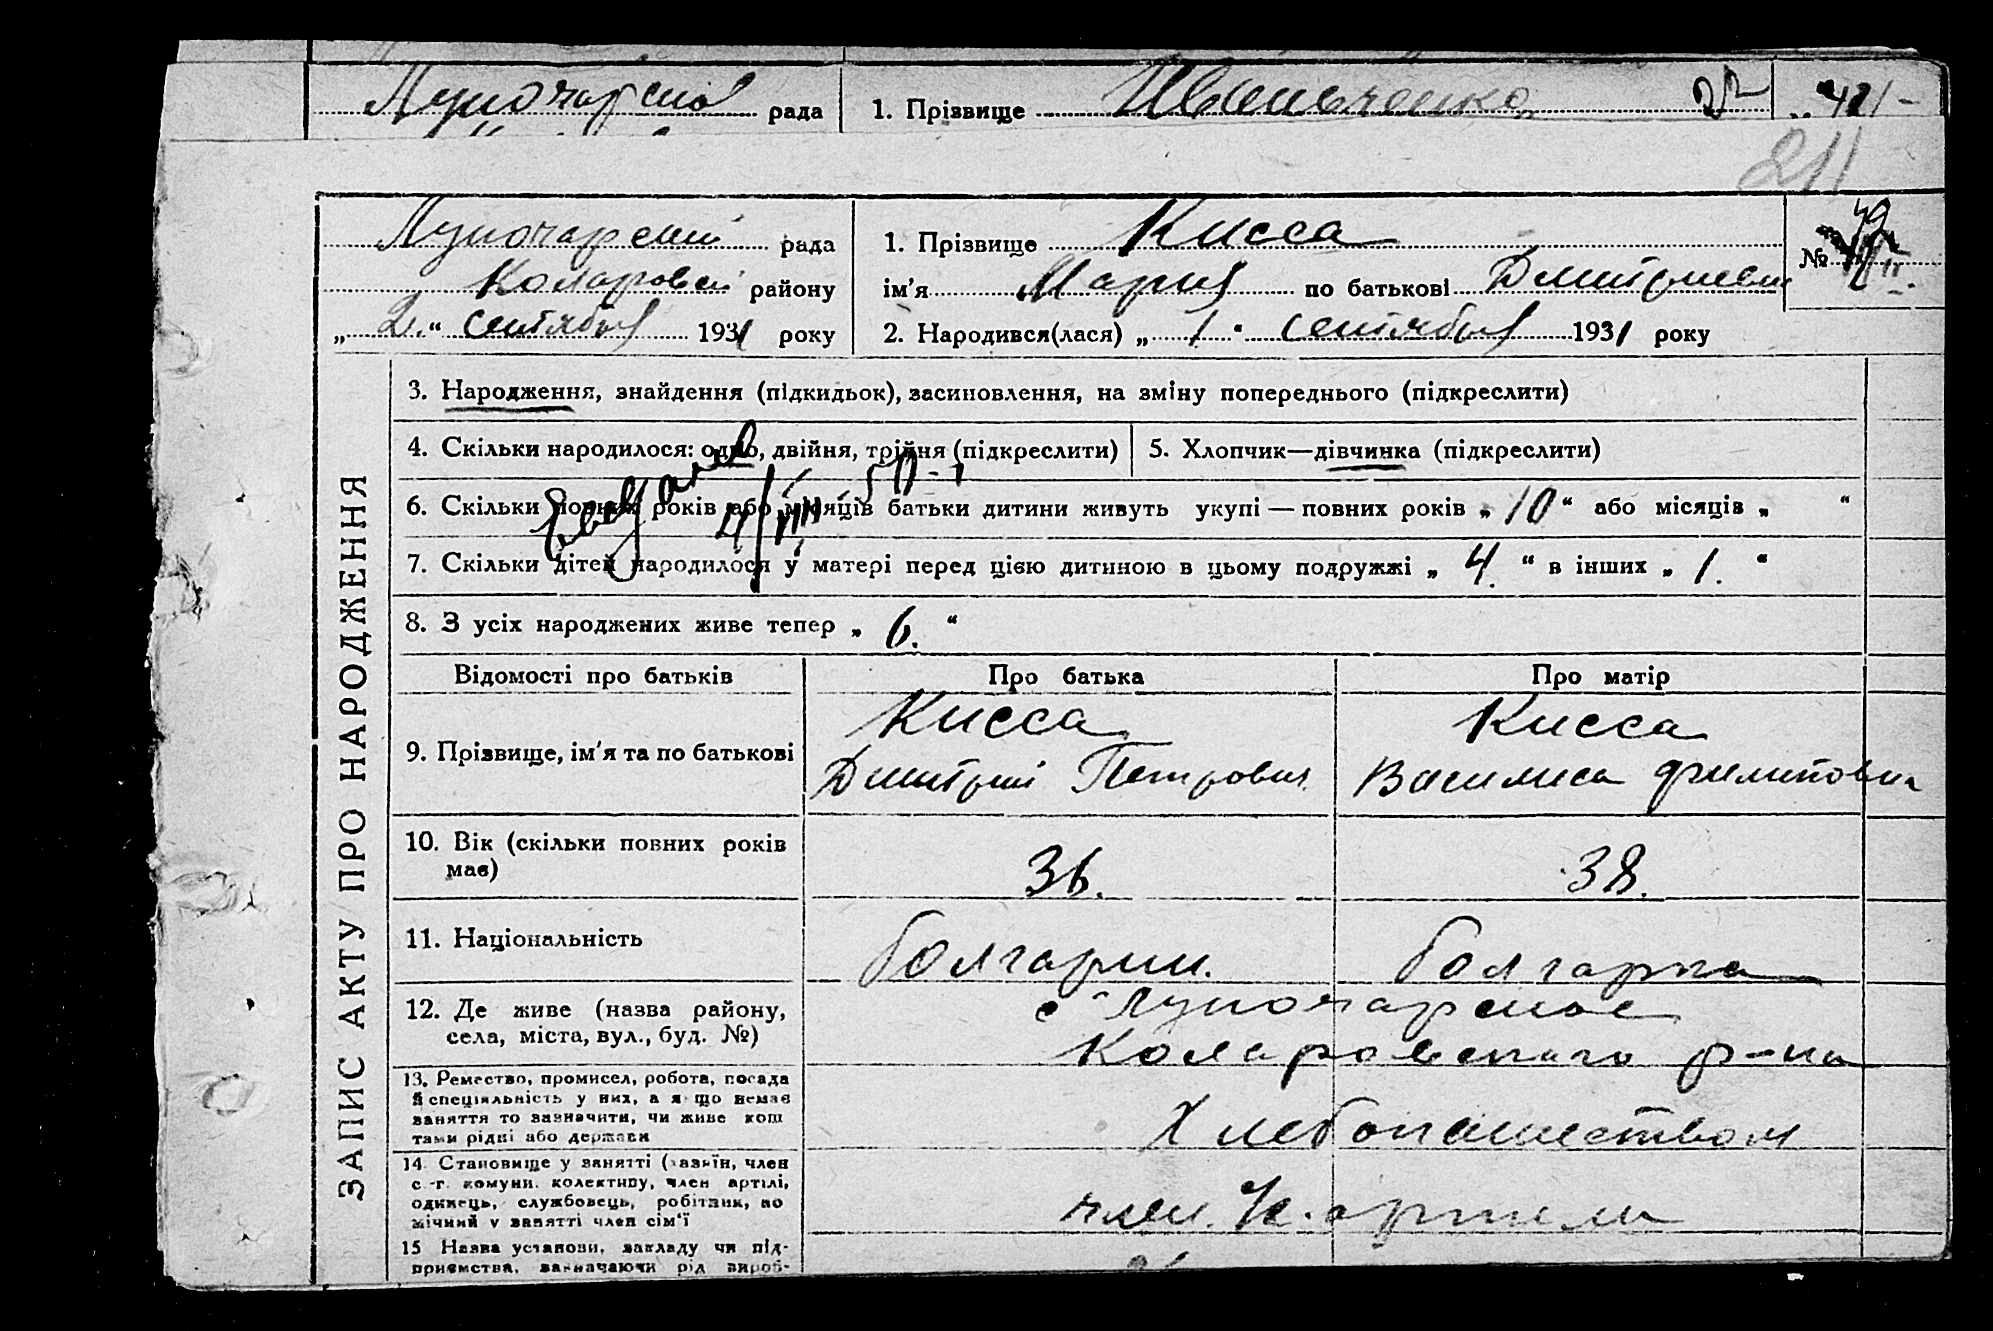 рада 1. Прізвище
211
Луночарский рада 1. Прізвище Кисса №
Коларовский району ім'я Мария по батькові Дмитриевна
„ 2. “ сентября 1931 року 2. Народився(лася) „ 1 “ сентября 1931 року
ЗАПИС АКТУ ПРО НАРОДЖЕННЯ
3. Народження, знайдення (підкидьок), засиновлення, на зміну попереднього (підкреслити)
4. Скільки народилося: одно, двійня, трійня (підкреслити) 5. Хлопчик—дівчинка (підкреслити)
6. Скільки повних років або місяців батьки дитини живуть укупі — повних років „ 10 “ або місяців „ “
7. Скільки дітей народилося у матері перед цією дитиною в цьому подружжі „ 4. “ в інших „ 1. “
8. З усіх народжених живе тепер „ 6. “
Відомості про батьків Про батька Про матір
9. Прізвище, ім'я та по батькові Кисса Кисса
Дмитрий Петрович Василиса Филиповна
10. Вік (скільки повних років має) 36. 38.
11. Національність болгарин. болгарка
12. Де живе (назва району, села, міста, вул., буд. №) с Луночарское
Коларовского р-на
13. Ремество, промисел, робота, посада й спеціяльність у них, а якщо немає заняття то зазначити, чи живе коштами рідні або держави Хлебопашеством
14. Становище у занятті (хазяїн, член с.-г. комуни, колективу, член артілі, одинець, службовець, робітник, помічний у занятті член сім'ї член. К. артели
15 Назва установи, закладу чи підприємства, зазначаючи рід вироб-